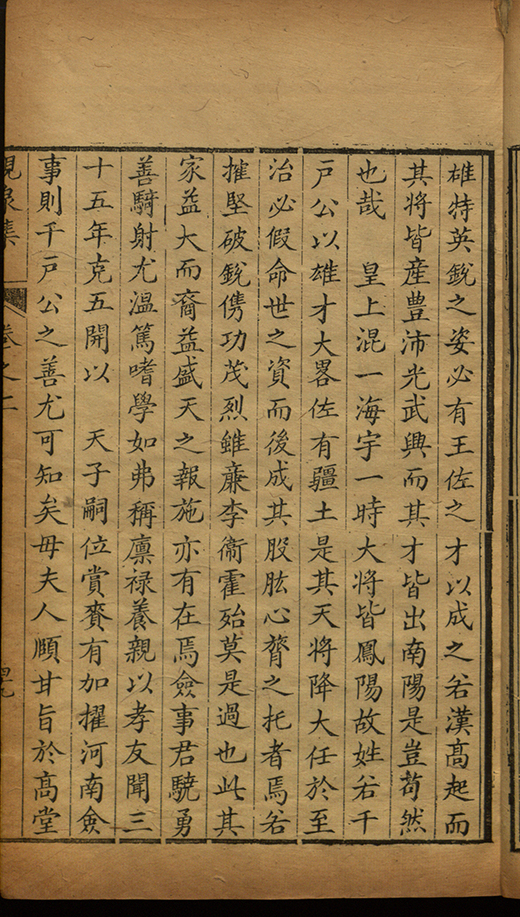 雄特英銳之姿必有王佐之才以成之若漢高起而
其將皆產豊沛光武興而其才皆出南陽是豈苟然
也哉　皇上混一海宇一時大將皆鳳陽故姓若千
戸公以雄才大畧佐有疆土是其天將降大任於至
治必假命世之資而後成其股肱心膂之托者焉若
摧堅破銳儁功茂烈雖亷李衛霍殆莫是過也此其
家益大而裔益盛天之報施亦有在焉僉事君驍勇
善騎射尤溫篤嗜學如弗稱廪祿養親以孝友聞三
十五年克五開以　天子嗣位賞賚有加擢河南僉
事則千戸公之善尤可知矣毋夫人頤甘旨於高堂
卷之二